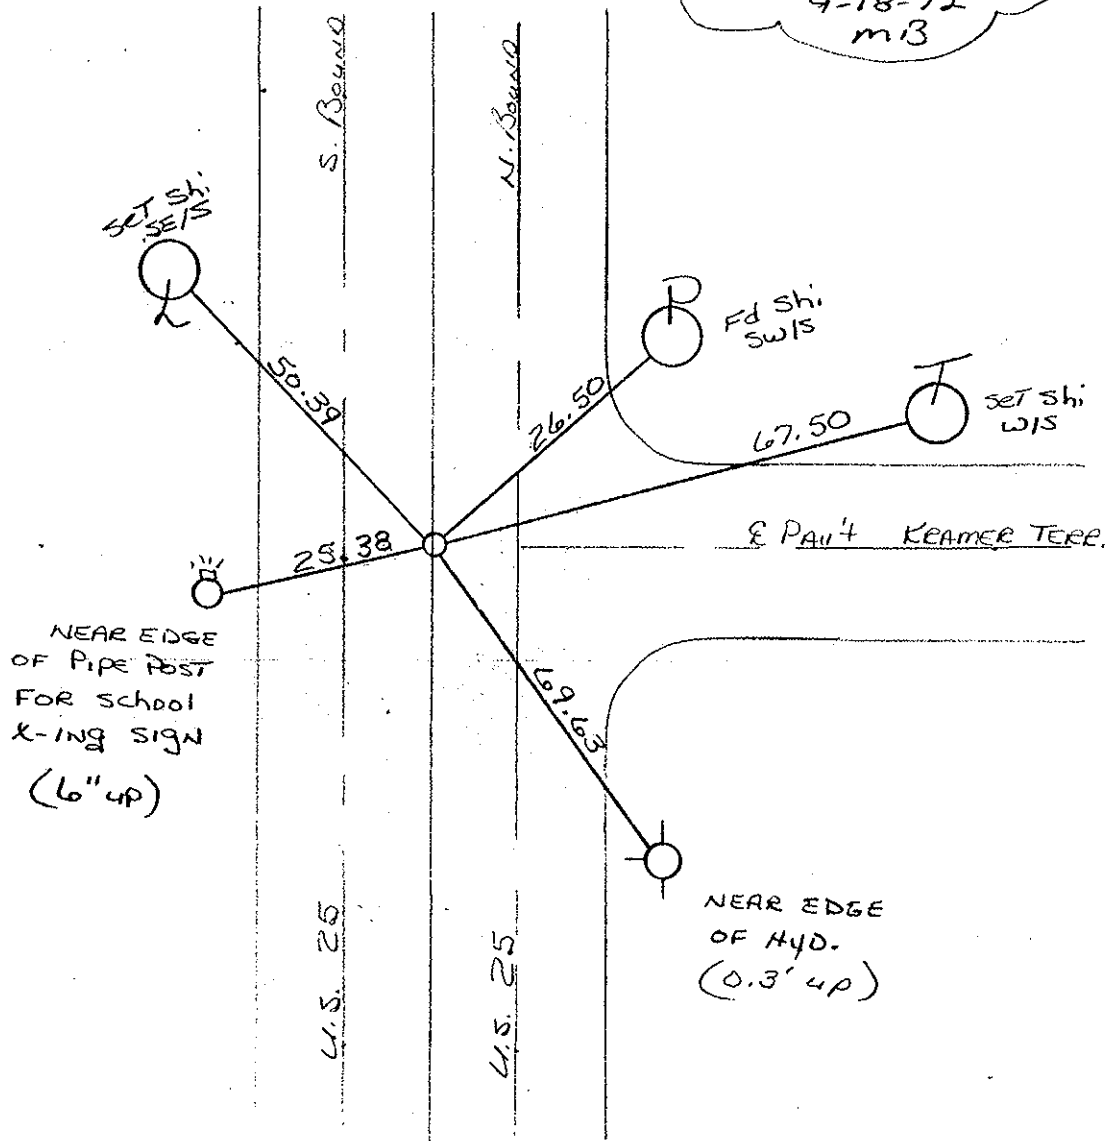 9-18-92
MB
S. BOUND
N. BOUND
SET Shi
SE/S
L
P
Fd Shi
SW/S
T
SET Shi
W/S
50.39
26.50
67.50
25.38
℄ PAV't KRAMER TERR.
NEAR EDGE
OF PIPE POST
FOR School
X-ING SIGN
(6" up)
69.63
NEAR EDGE
OF HYD.
(0.3' up)
U.S. 25
U.S. 25